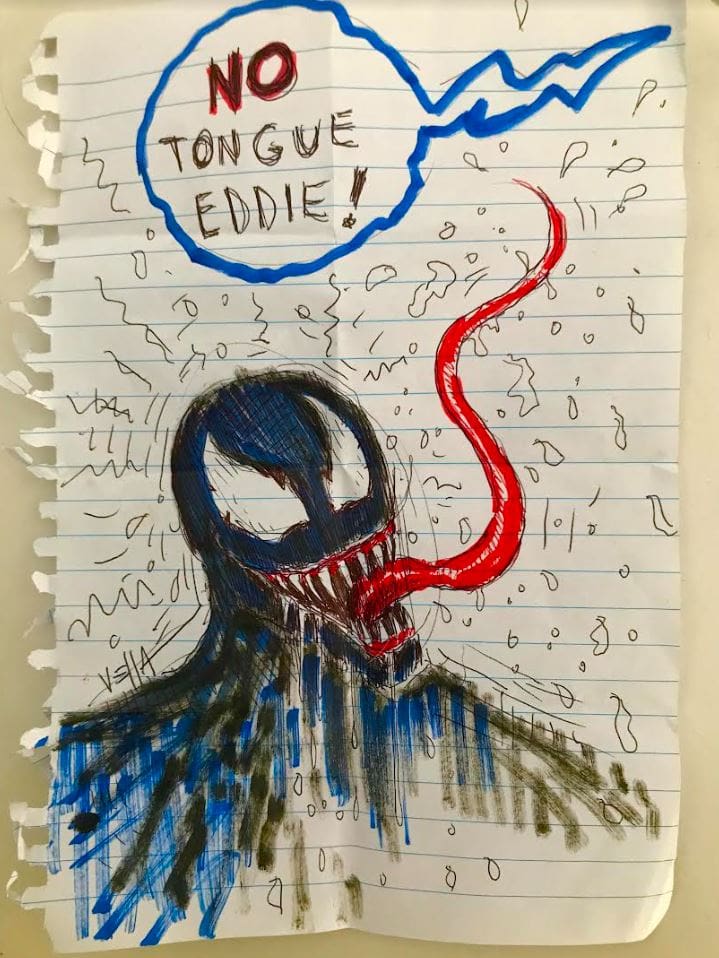 NO
TONGUE
EDDIE!
VEllA